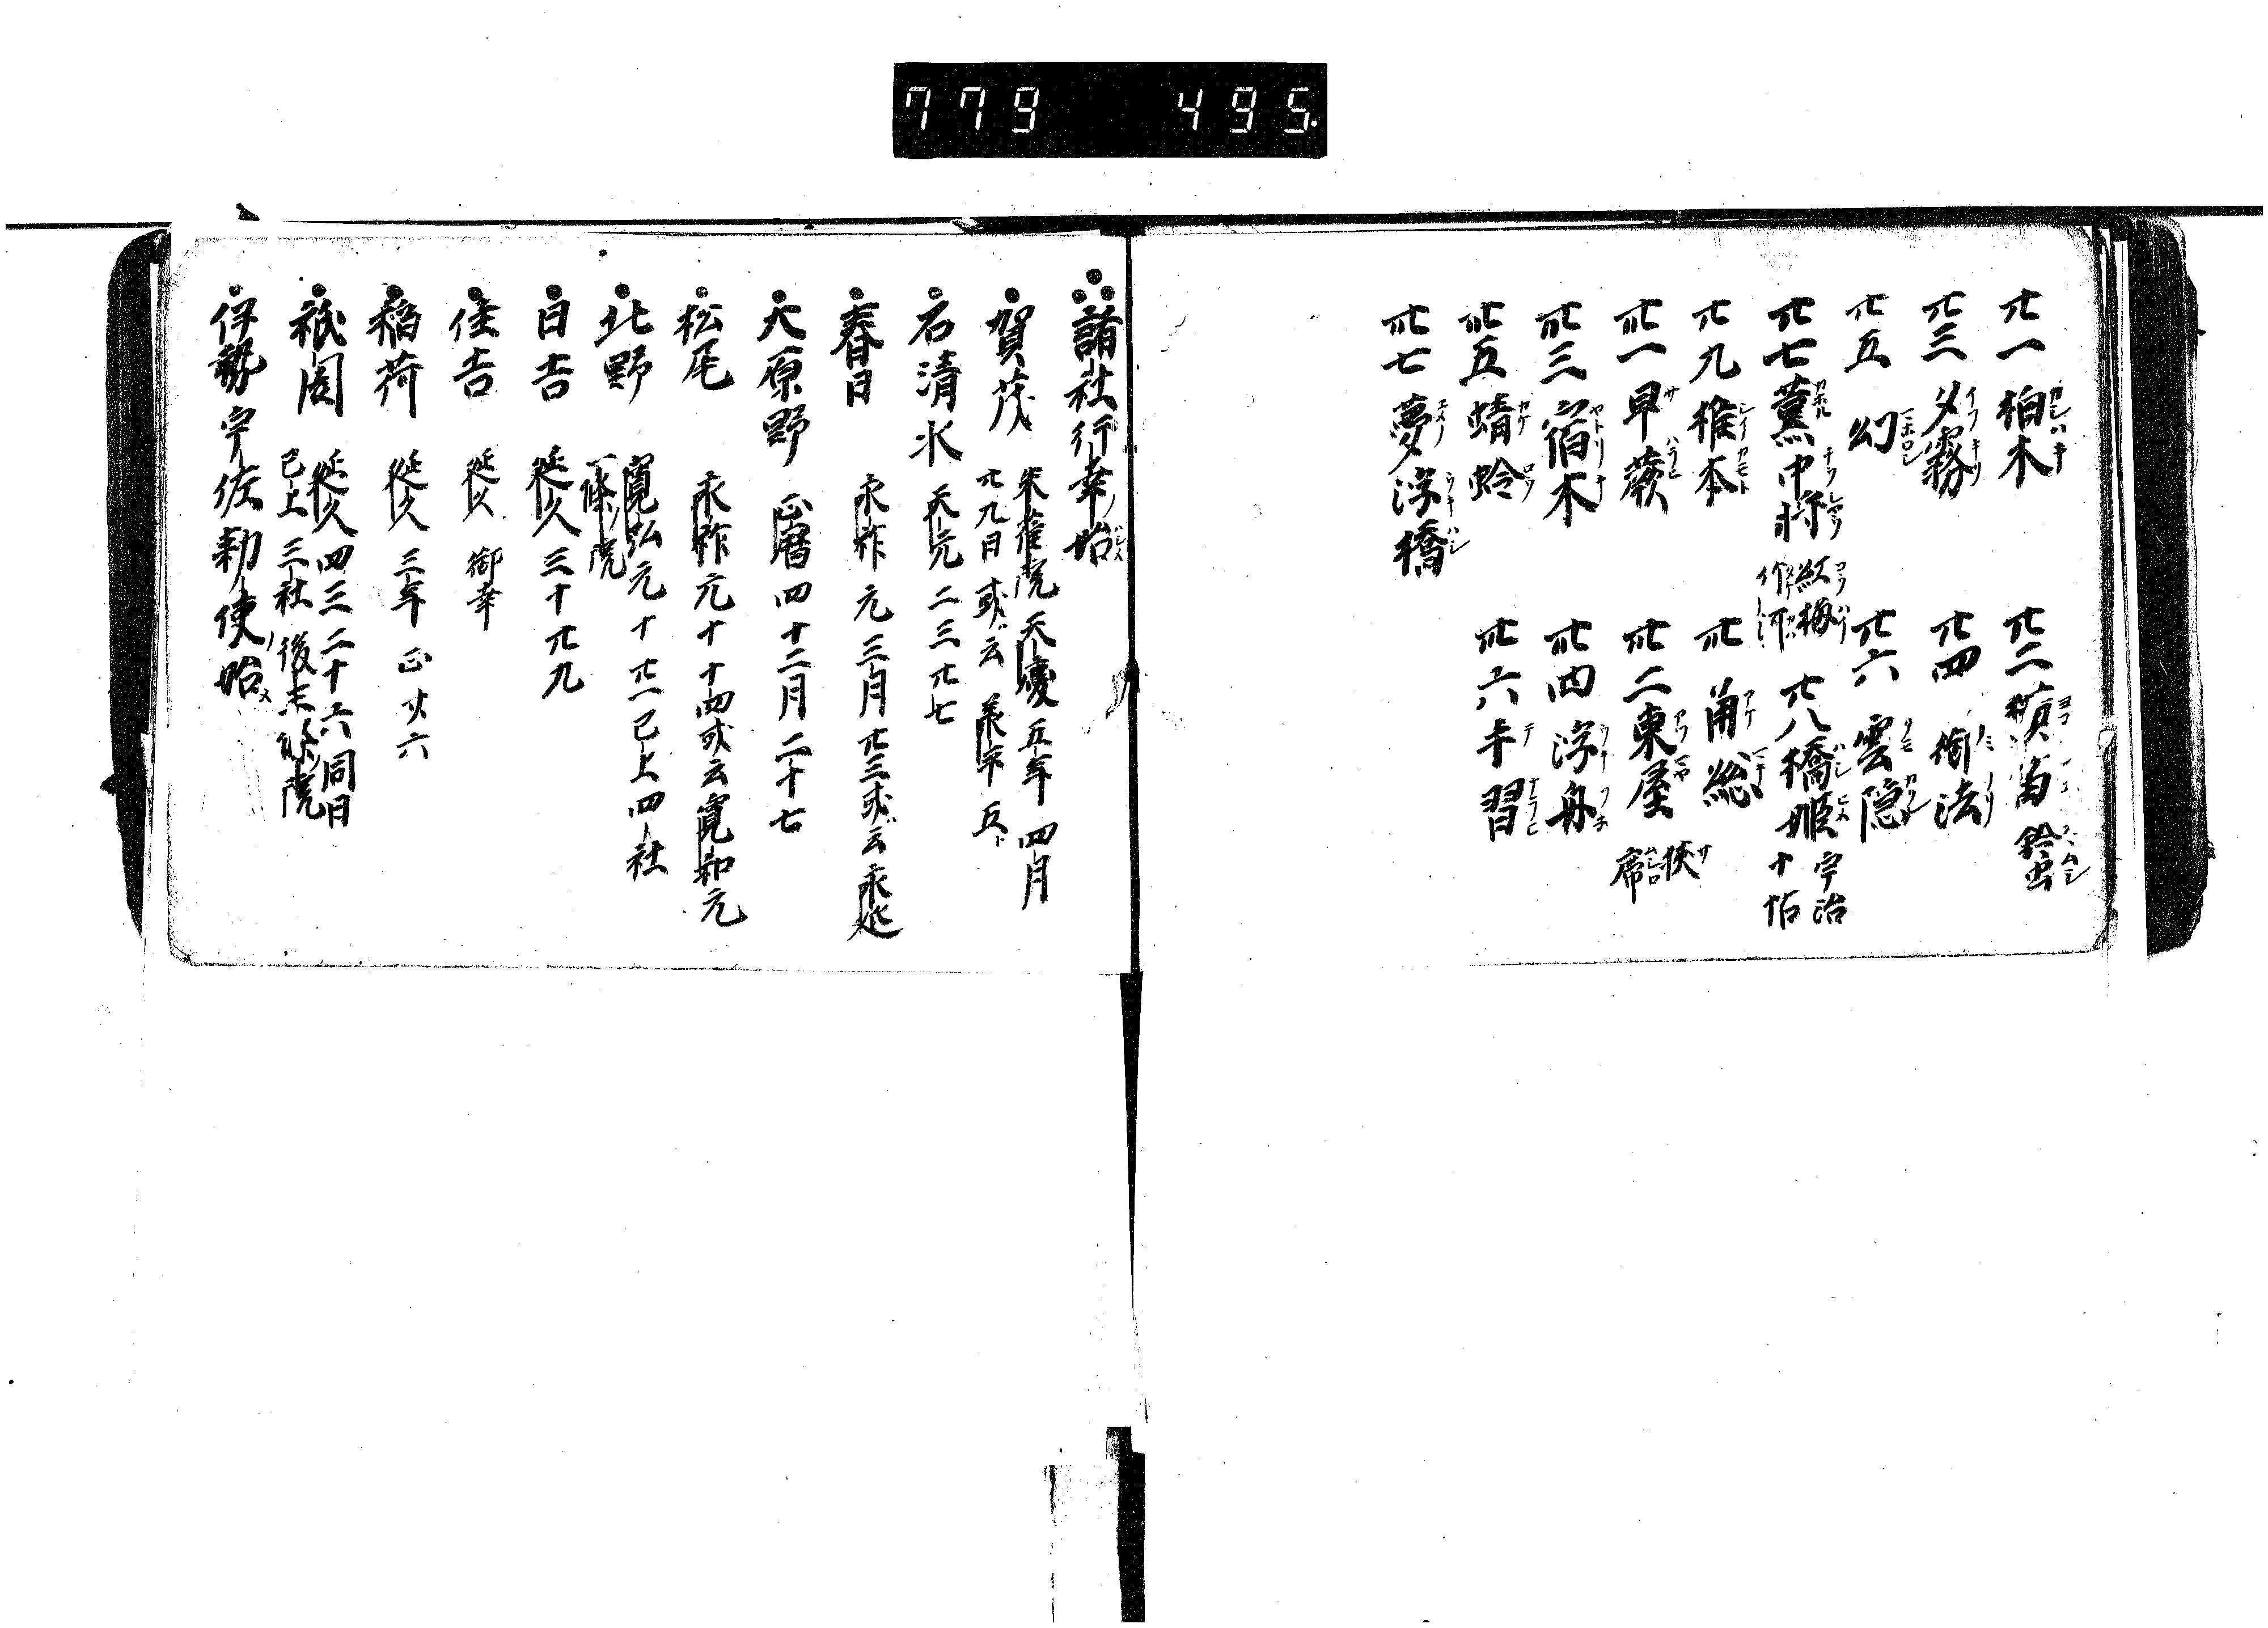 779 495
廿一 柏木 廿二 横笛 鈴虫
廿三 夕霧 廿四 御法
廿五 幻 廿六 雲隠
廿七 薫中将 紅梅 竹河 廿八 橋姫 宇治十帖
廿九 椎本 卅 角総
卅一 早蕨 卅二 東屋 狭席
卅三 宿木 卅四 浮舟
卅五 蜻蛉 卅六 手習
卅七 夢浮橋
諸社行幸ノ始
賀茂 朱雀院天慶五年四月
廿九日或云
石清水 天元二三廿七
春日 永祚元三月廿三或云永延
大原野 正暦四十二月二十七
松尾 永祚元十十四或云寛和元
北野 寛弘元十廿一已上四社
一條ノ院
日吉 延久三十廿九
住吉 延久 御幸
稲荷 延久三年正 六
祇園 延久四三二十六同日
已上三社後三条院
伊勢宇佐勅使ノ始メ